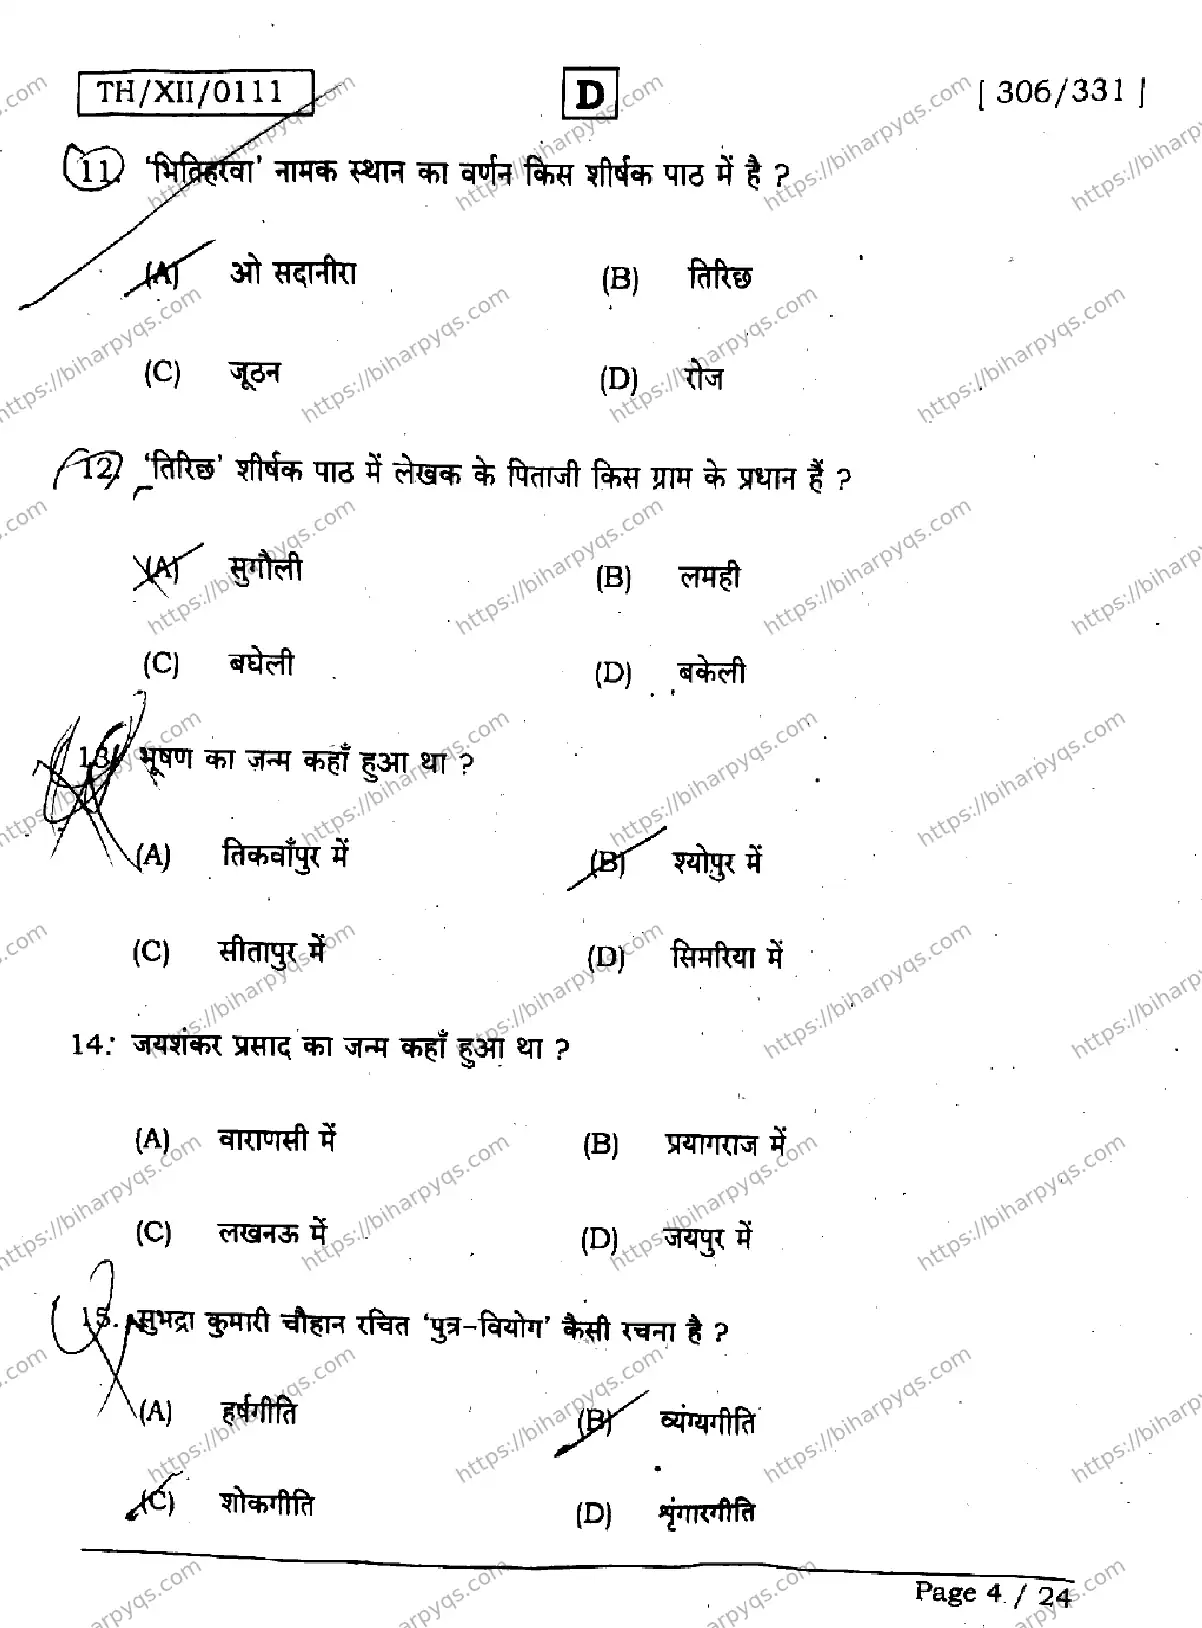 TH/XII/0111 D [ 306/331 ]
11. 'भितिहरवा' नामक स्थान का वर्णन किस शीर्षक पाठ में है ?
(A) ओ सदानीरा (B) तिरिछ
(C) जूठन (D) रोज
12. 'तिरिछ' शीर्षक पाठ में लेखक के पिताजी किस ग्राम के प्रधान हैं ?
(A) सुगौली (B) लमही
(C) बघेली (D) बकेली
13. भूषण का जन्म कहाँ हुआ था ?
(A) तिकवाँपुर में (B) श्योपुर में
(C) सीतापुर में (D) सिमरिया में
14. जयशंकर प्रसाद का जन्म कहाँ हुआ था ?
(A) वाराणसी में (B) प्रयागराज में
(C) लखनऊ में (D) जयपुर में
15. सुभद्रा कुमारी चौहान रचित 'पुत्र-वियोग' कैसी रचना है ?
(A) हर्षगीति (B) व्यंग्यगीति
(C) शोकगीति (D) शृंगारगीति
Page 4 / 24
https://biharpyqs.com